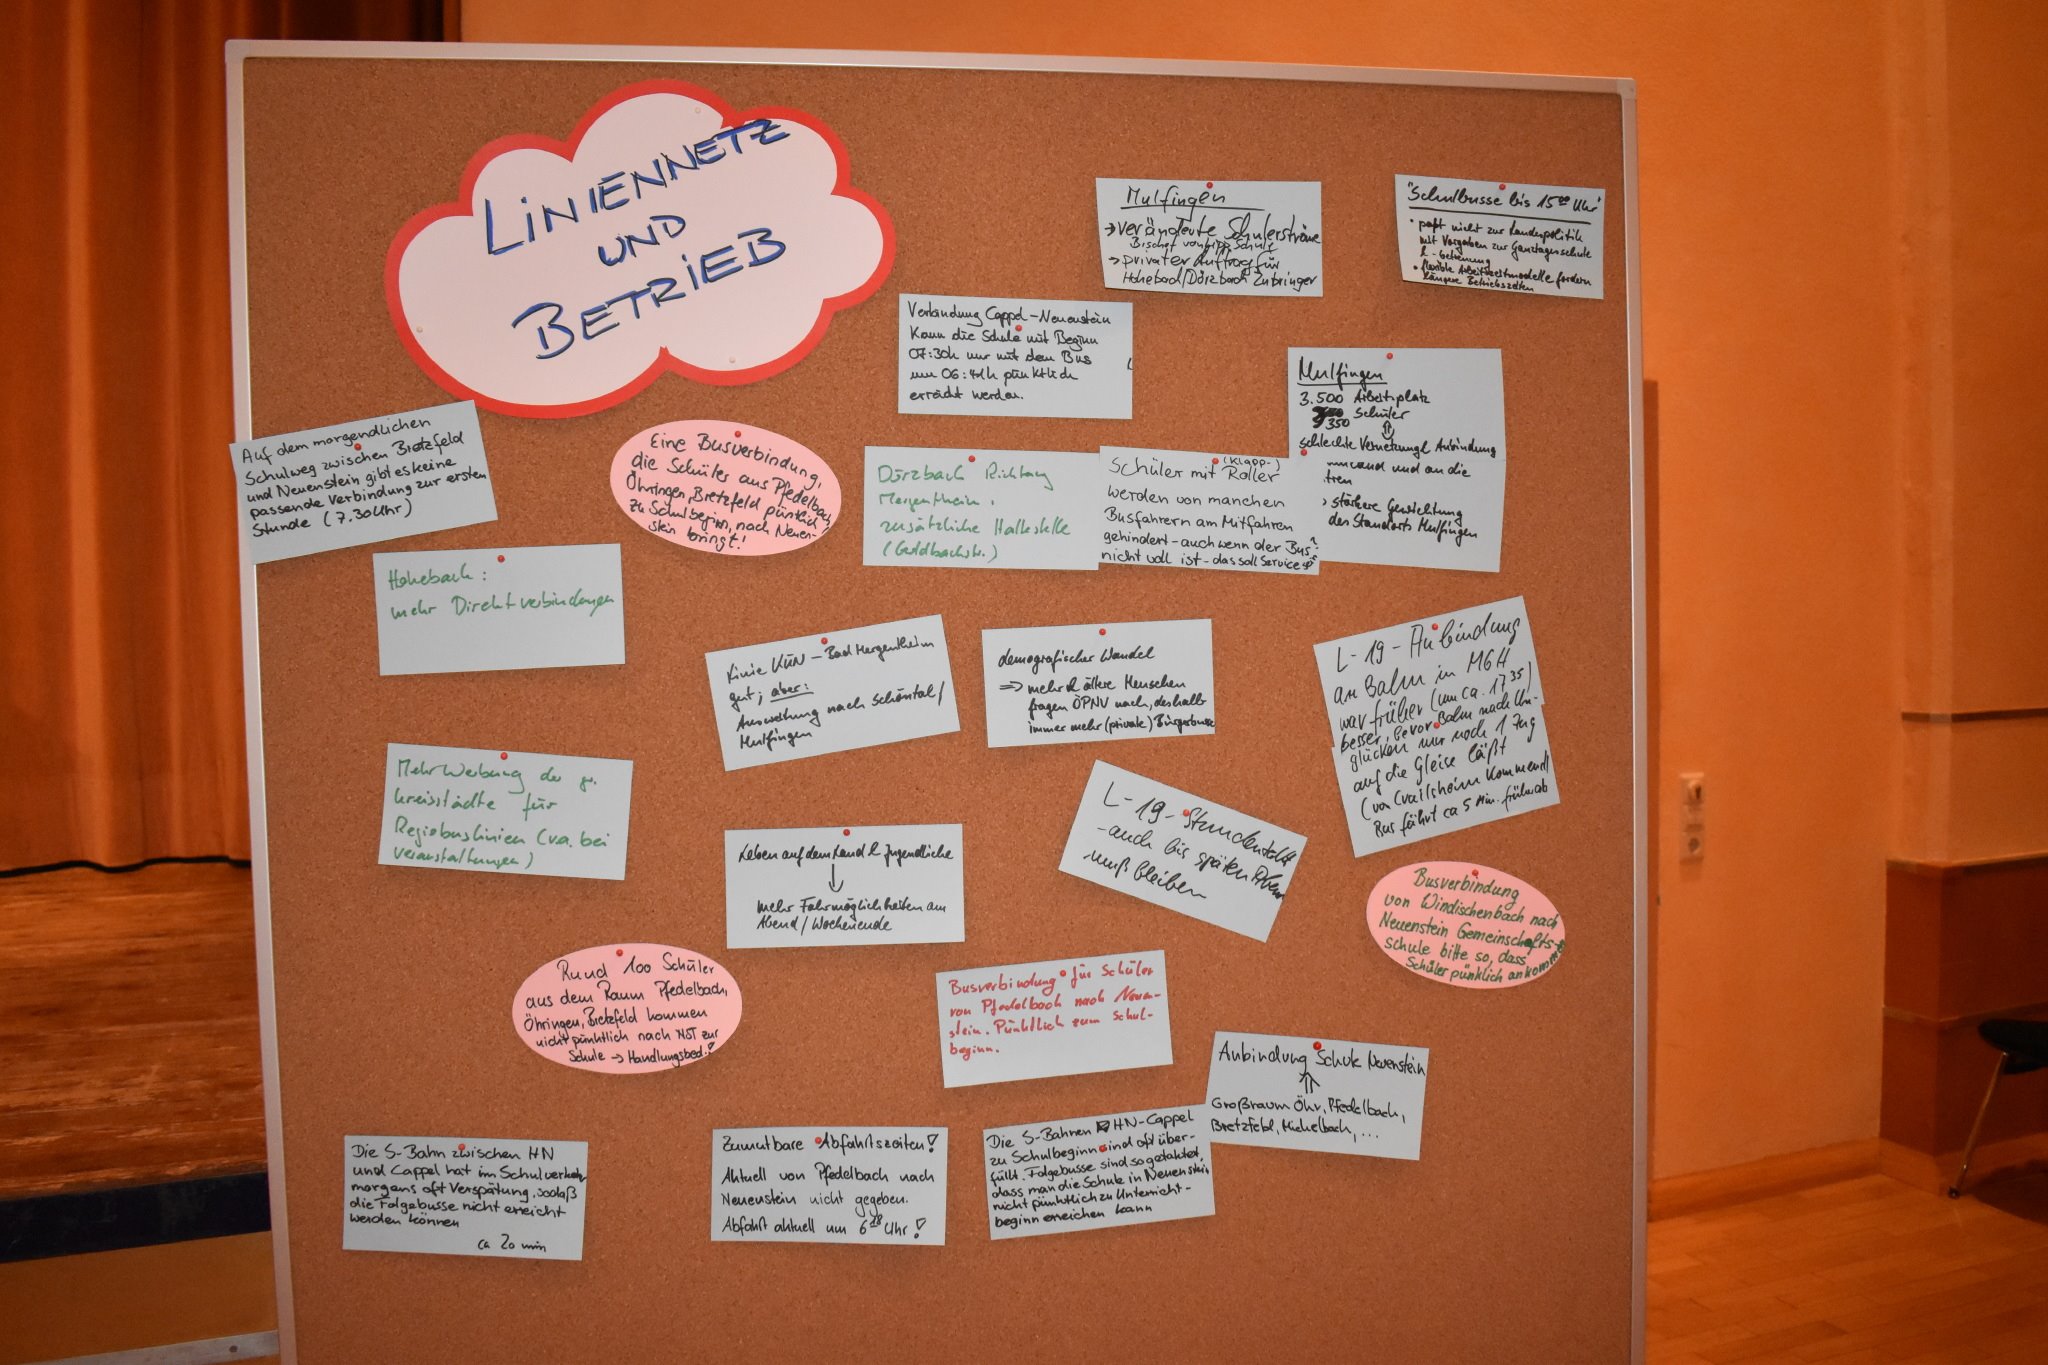 LINIENNETZ
UND
BETRIEB
Mulfingen
→ veränderte Schülerströme
Bischof von Lipp Schule
→ privater Auftrag für
Hohebach/Dörzbach Zubringer
"Schulbusse bis 15.00 Uhr"
• paßt nicht zur Landespolitik
mit Vorgaben zur Ganztagesschule
& -betreuung
• flexible Arbeitszeitmodelle fordern
längere Betriebszeiten
Verbindung Cappel - Neuenstein
Kann die Schule mit Beginn
07:30h nur mit dem Bus
um 06:41h pünktlich
erreicht werden.
Mulfingen
3.500 Arbeitsplatz
350 Schüler
⇑
schlechte Vernetzung & Anbindung
und an die
→ stärkere Gewichtung
des Standorts Mulfingen
Auf dem morgendlichen
Schulweg zwischen Bretzfeld
und Neuenstein gibt es keine
passende Verbindung zur ersten
Stunde (7.30 Uhr)
Eine Busverbindung,
die Schüler aus Pfedelbach,
Öhringen, Bretzfeld pünktlich
zu Schulbeginn, nach Neuen-
stein bringt!
Dörzbach Richtung
Mergentheim:
zusätzliche Haltestelle
(Goldbachstr.)
(Klapp-)
Schüler mit Roller
werden von manchen
Busfahrern am Mitfahren
gehindert - auch wenn der Bus
nicht voll ist - das soll Service
Hohebach:
mehr Direktverbindungen
Linie KÜN - Bad Mergentheim
gut, aber:
Ausweitung nach Schöntal/
Mulfingen
demografischer Wandel
⇒ mehr & ältere Menschen
fragen ÖPNV nach, deshalb
immer mehr (private) Bürgerbusse
L-19-Anbindung
an Bahn in MGH
war früher (um ca. 17 35)
besser, bevor Bahn nach Un-
glücken nur noch 1 Zug
auf die Gleise läßt
(von Crailsheim kommend)
Bus fährt ca 5 Min. früher ab
Mehr Werbung der gr.
Kreisstädte für
Regiobuslinien (va. bei
Veranstaltungen)
Leben auf dem Land & Jugendliche
↓
mehr Fahrmöglichkeiten am
Abend/Wochenende
L-19-Stundentakt
-auch bis späten Abend
muß bleiben
Busverbindung
von Windischenbach nach
Neuenstein Gemeinschafts-
schule bitte so, dass
Schüler pünktlich ankommen
Rund 100 Schüler
aus dem Raum Pfedelbach,
Öhringen, Bretzfeld kommen
nicht pünktlich nach NST zur
Schule → Handlungsbed.!
Busverbindung für Schüler
von Pfedelbach nach Neuen-
stein. Pünktlich zum Schul-
beginn.
Anbindung Schule Neuenstein
⇑
Großraum Öhr, Pfedelbach,
Bretzfeld, Michelbach, ...
Die S-Bahn zwischen HN
und Cappel hat im Schulverkehr
morgens oft Verspätung, sodaß
die Folgebusse nicht erreicht
werden können
ca 20 min
Zumutbare Abfahrtszeiten!
Aktuell von Pfedelbach nach
Neuenstein nicht gegeben.
Abfahrt aktuell um 6 18 Uhr!
Die S-Bahnen HN-Cappel
zu Schulbeginn sind oft über-
füllt. Folgebusse sind so getaktet,
dass man die Schule in Neuenstein
nicht pünktlich zu Unterricht-
beginn erreichen kann